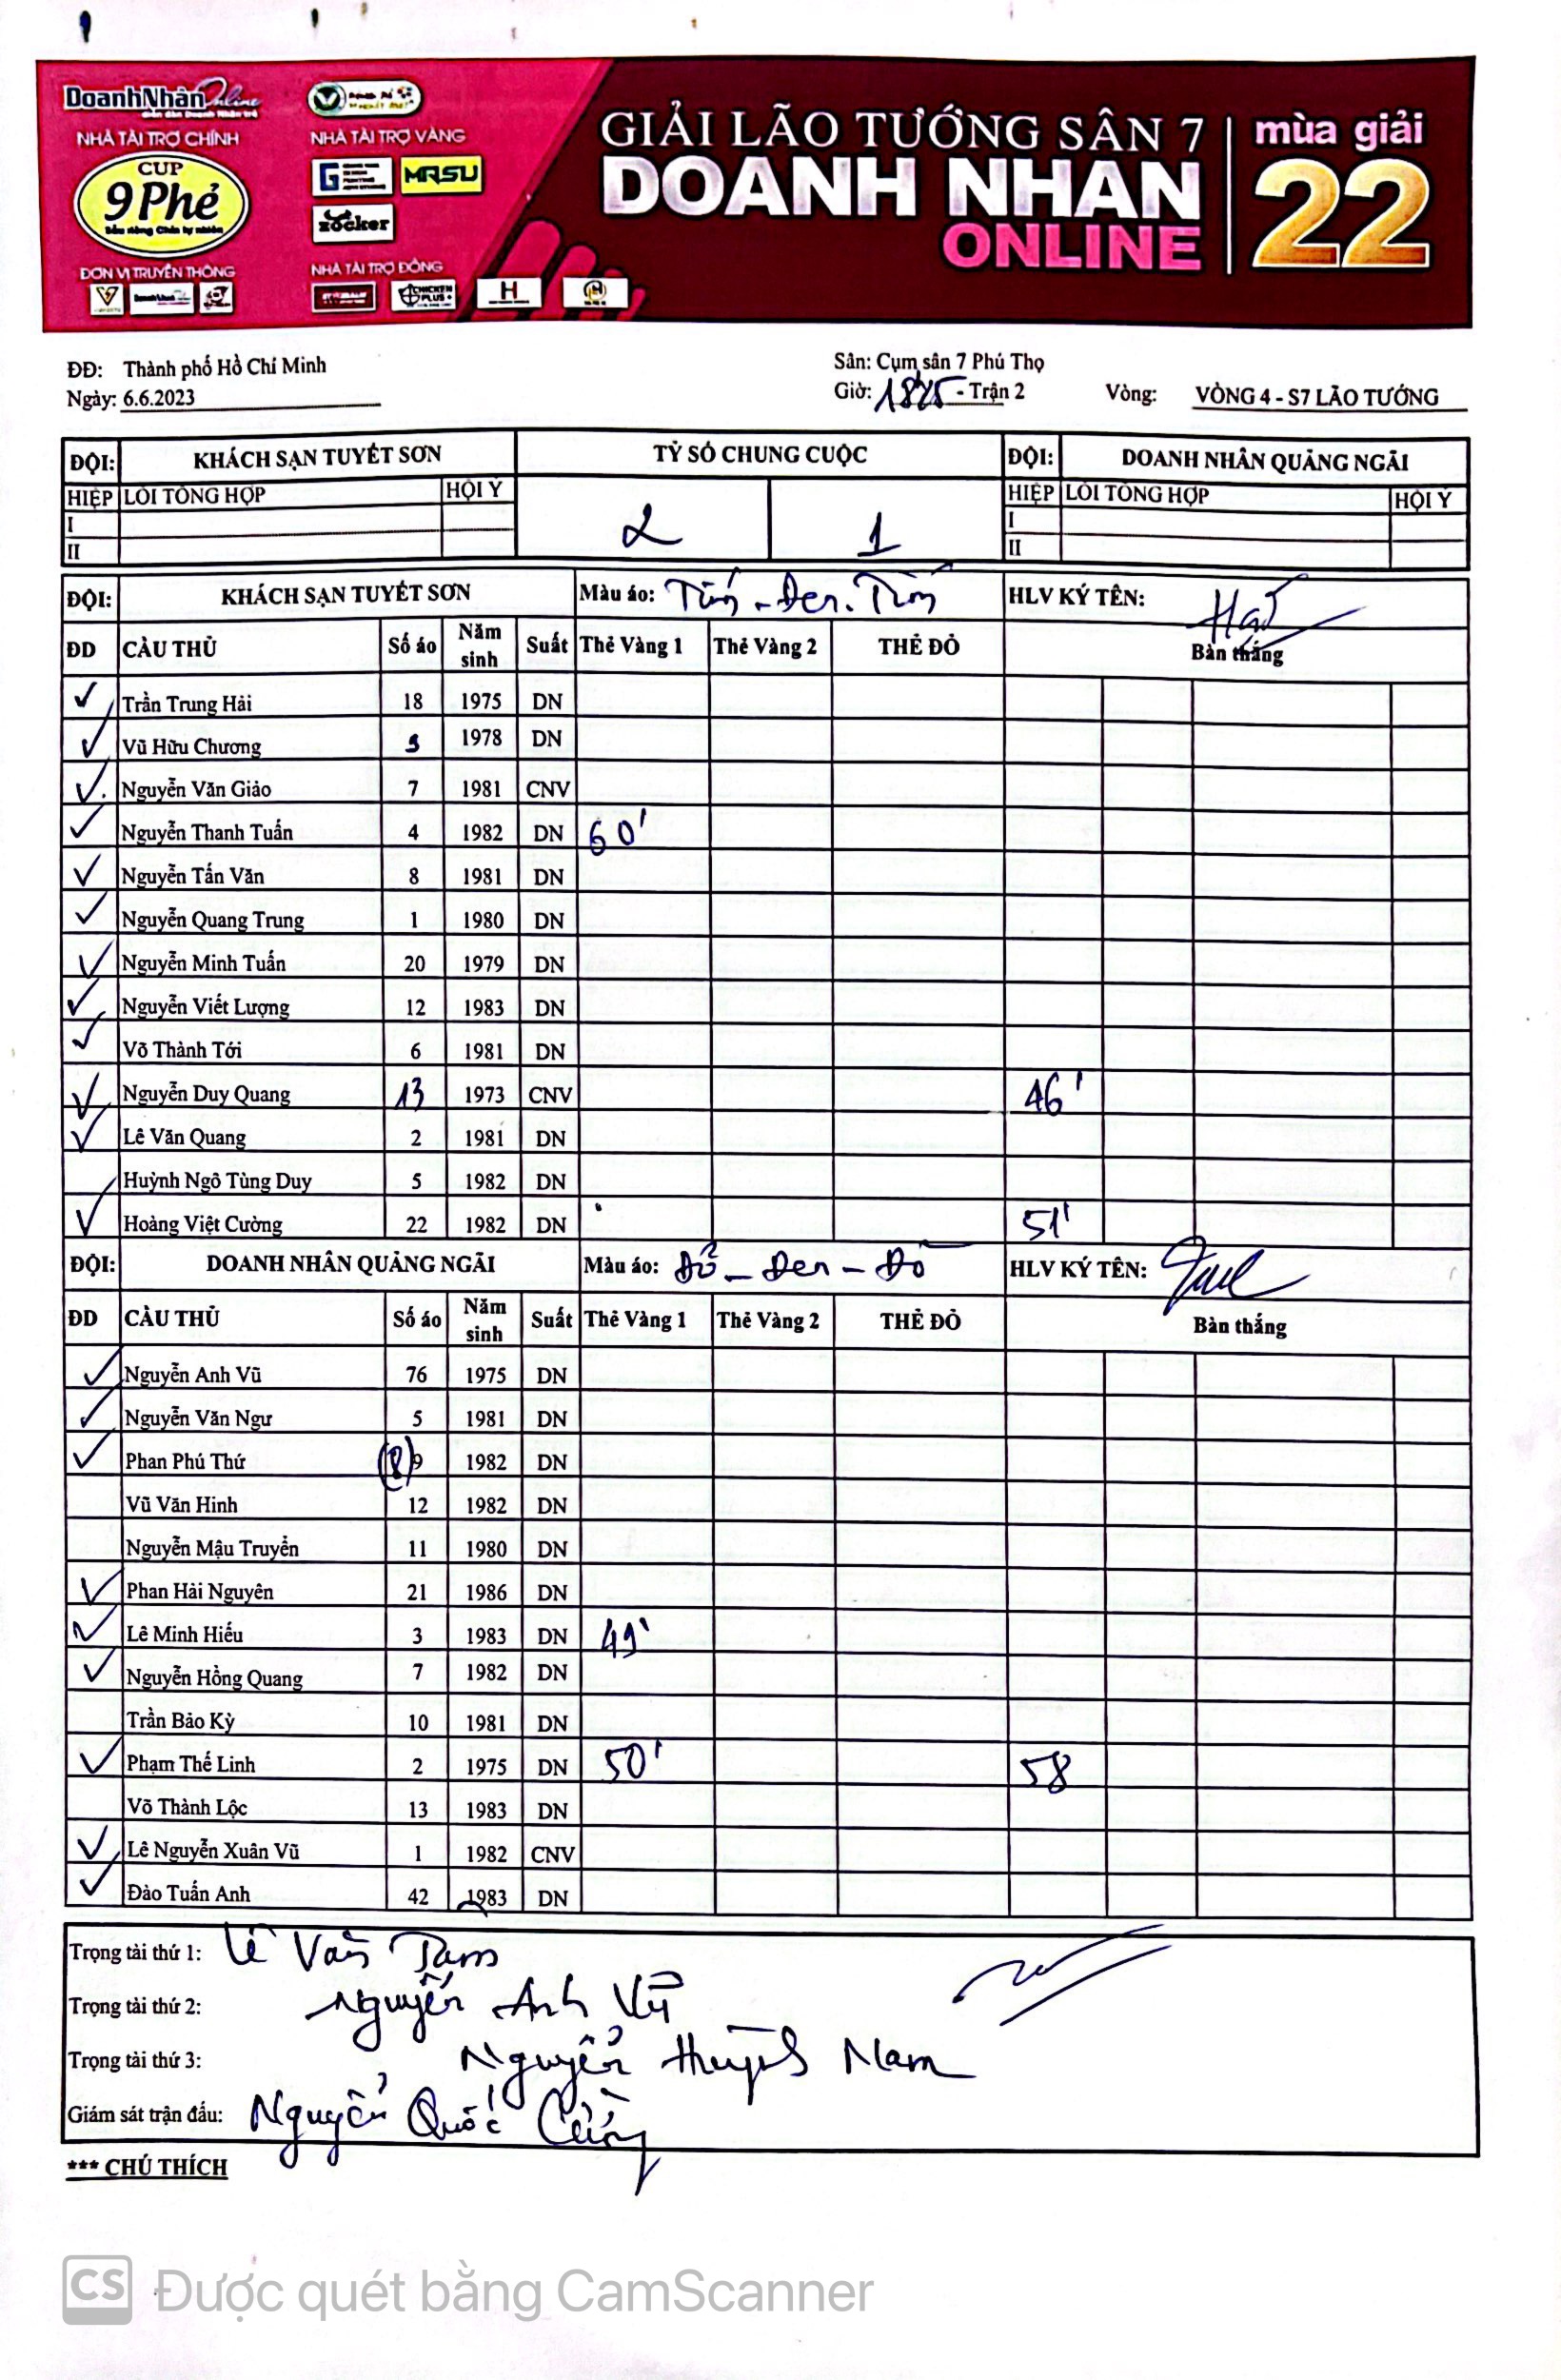 DoanhNhân Online
NHÀ TÀI TRỢ CHÍNH
NHÀ TÀI TRỢ VÀNG
CUP
9 Phẻ
Sầu riêng Chín tự nhiên
MRSU
zocker
ĐƠN VỊ TRUYỀN THÔNG
NHÀ TÀI TRỢ ĐỒNG
CHICKEN PLUS
H
GIẢI LÃO TƯỚNG SÂN 7
DOANH NHAN
ONLINE
mùa giải
22
ĐĐ: Thành phố Hồ Chí Minh
Sân: Cụm sân 7 Phú Thọ
Ngày: 6.6.2023
Giờ: 18h25 - Trận 2
Vòng: VÒNG 4 - S7 LÃO TƯỚNG
ĐỘI: KHÁCH SẠN TUYẾT SƠN TỶ SỐ CHUNG CUỘC ĐỘI: DOANH NHÂN QUẢNG NGÃI
HIỆP LỖI TỔNG HỢP HỘI Ý HIỆP LỖI TỔNG HỢP HỘI Ý
I I
II 2 1 II
ĐỘI: KHÁCH SẠN TUYẾT SƠN Màu áo: Tím - Đen - Tím HLV KÝ TÊN:
ĐD CẦU THỦ Số áo Năm sinh Suất Thẻ Vàng 1 Thẻ Vàng 2 THẺ ĐỎ Bàn thắng
Trần Trung Hải 18 1975 DN
Vũ Hữu Chương 9 1978 DN
Nguyễn Văn Giảo 7 1981 CNV
Nguyễn Thanh Tuấn 4 1982 DN 60'
Nguyễn Tấn Văn 8 1981 DN
Nguyễn Quang Trung 1 1980 DN
Nguyễn Minh Tuấn 20 1979 DN
Nguyễn Viết Lượng 12 1983 DN
Võ Thành Tới 6 1981 DN
Nguyễn Duy Quang 13 1973 CNV 46'
Lê Văn Quang 2 1981 DN
Huỳnh Ngô Tùng Duy 5 1982 DN
Hoàng Việt Cường 22 1982 DN 51'
ĐỘI: DOANH NHÂN QUẢNG NGÃI Màu áo: Đỏ - Đen - Đỏ HLV KÝ TÊN:
ĐD CẦU THỦ Số áo Năm sinh Suất Thẻ Vàng 1 Thẻ Vàng 2 THẺ ĐỎ Bàn thắng
Nguyễn Anh Vũ 76 1975 DN
Nguyễn Văn Ngư 5 1981 DN
Phan Phú Thứ (8) 9 1982 DN
Vũ Văn Hinh 12 1982 DN
Nguyễn Mậu Truyền 11 1980 DN
Phan Hải Nguyên 21 1986 DN
Lê Minh Hiếu 3 1983 DN 49'
Nguyễn Hồng Quang 7 1982 DN
Trần Bảo Kỳ 10 1981 DN
Phạm Thế Linh 2 1975 DN 50' 58
Võ Thành Lộc 13 1983 DN
Lê Nguyễn Xuân Vũ 1 1982 CNV
Đào Tuấn Anh 42 1983 DN
Trọng tài thứ 1: Lê Văn Tam
Trọng tài thứ 2: Nguyễn Anh Vũ
Trọng tài thứ 3: Nguyễn Huỳnh Nam
Giám sát trận đấu: Nguyễn Quốc
*** CHÚ THÍCH
CS Được quét bằng CamScanner